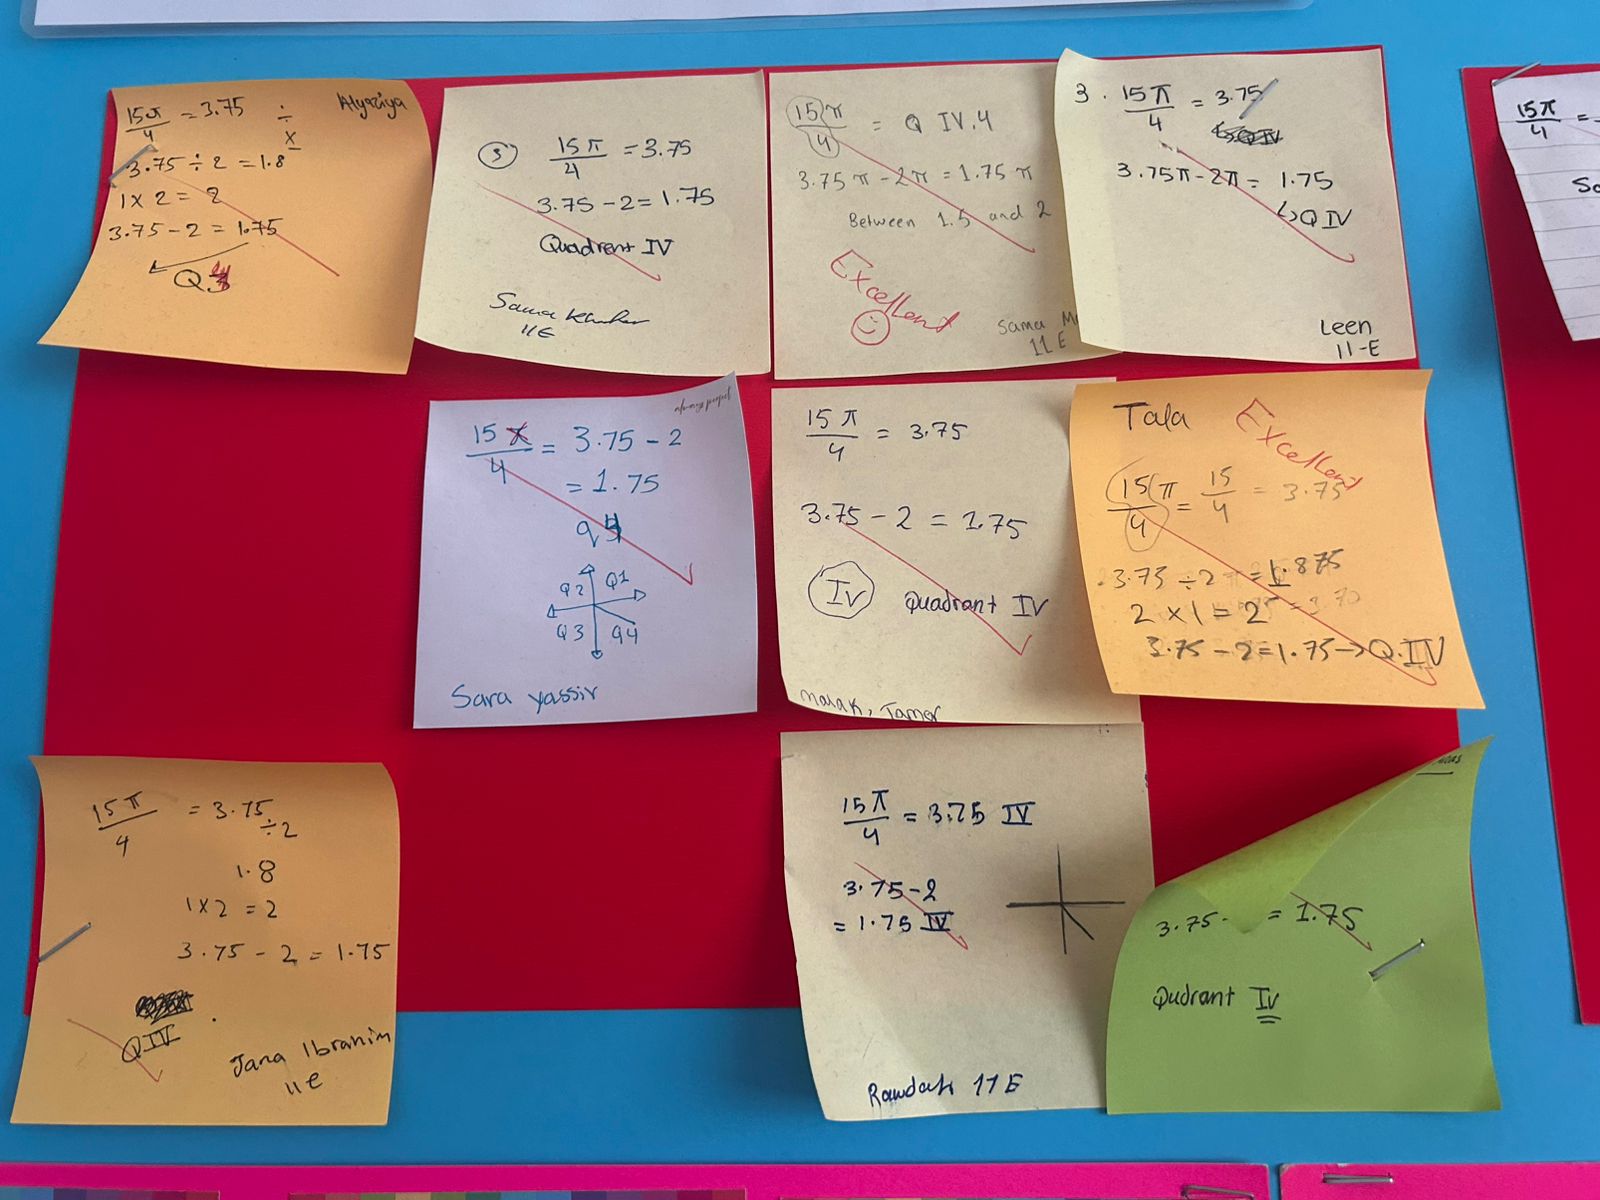 Alyaziya
15π/4 = 3.75 ÷
x
3.75 ÷ 2 = 1.8
1 x 2 = 2
3.75 - 2 = 1.75
Q
3 15π/4 = 3.75
3.75 - 2 = 1.75
Quadrent IV
Sama
11E
15π/4 = Q IV.4
3.75 π - 2π = 1.75 π
Between 1.5 and 2
Excellent
Sama M
11 E
3. 15π/4 = 3.75
3.75π - 2π = 1.75
↳ Q IV
Leen
11-E
15π/4 =
15π/4 = 3.75 - 2
= 1.75
q4
Q2 Q1
Q3 Q4
Sara yassir
15π/4 = 3.75
3.75 - 2 = 1.75
IV Quadrant IV
malak, Tamer
Tala
Excellent
15π/4 = 15/4 = 3.75
3.75 ÷ 2 = 1.875
2 x 1 = 2
3.75 - 2 = 1.75 → Q.IV
15π/4 = 3.75
÷2
1.8
1 x 2 = 2
3.75 - 2 = 1.75
QIV
Jana Ibrahim
11E
15π/4 = 3.75 IV
3.75 - 2
= 1.75 IV
Rawdah 11E
3.75 - = 1.75
Qudrant IV